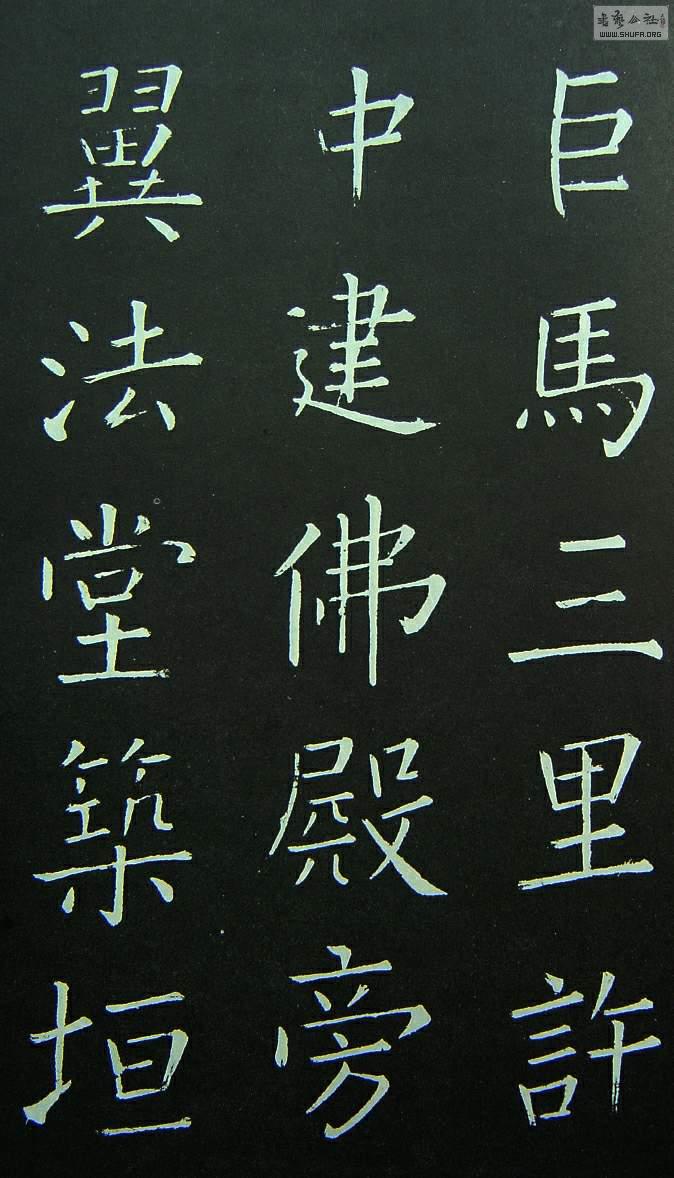 巨馬三里許
中建佛殿旁
翼法堂築垣
書藝公社
WWW.SHUFA.ORG